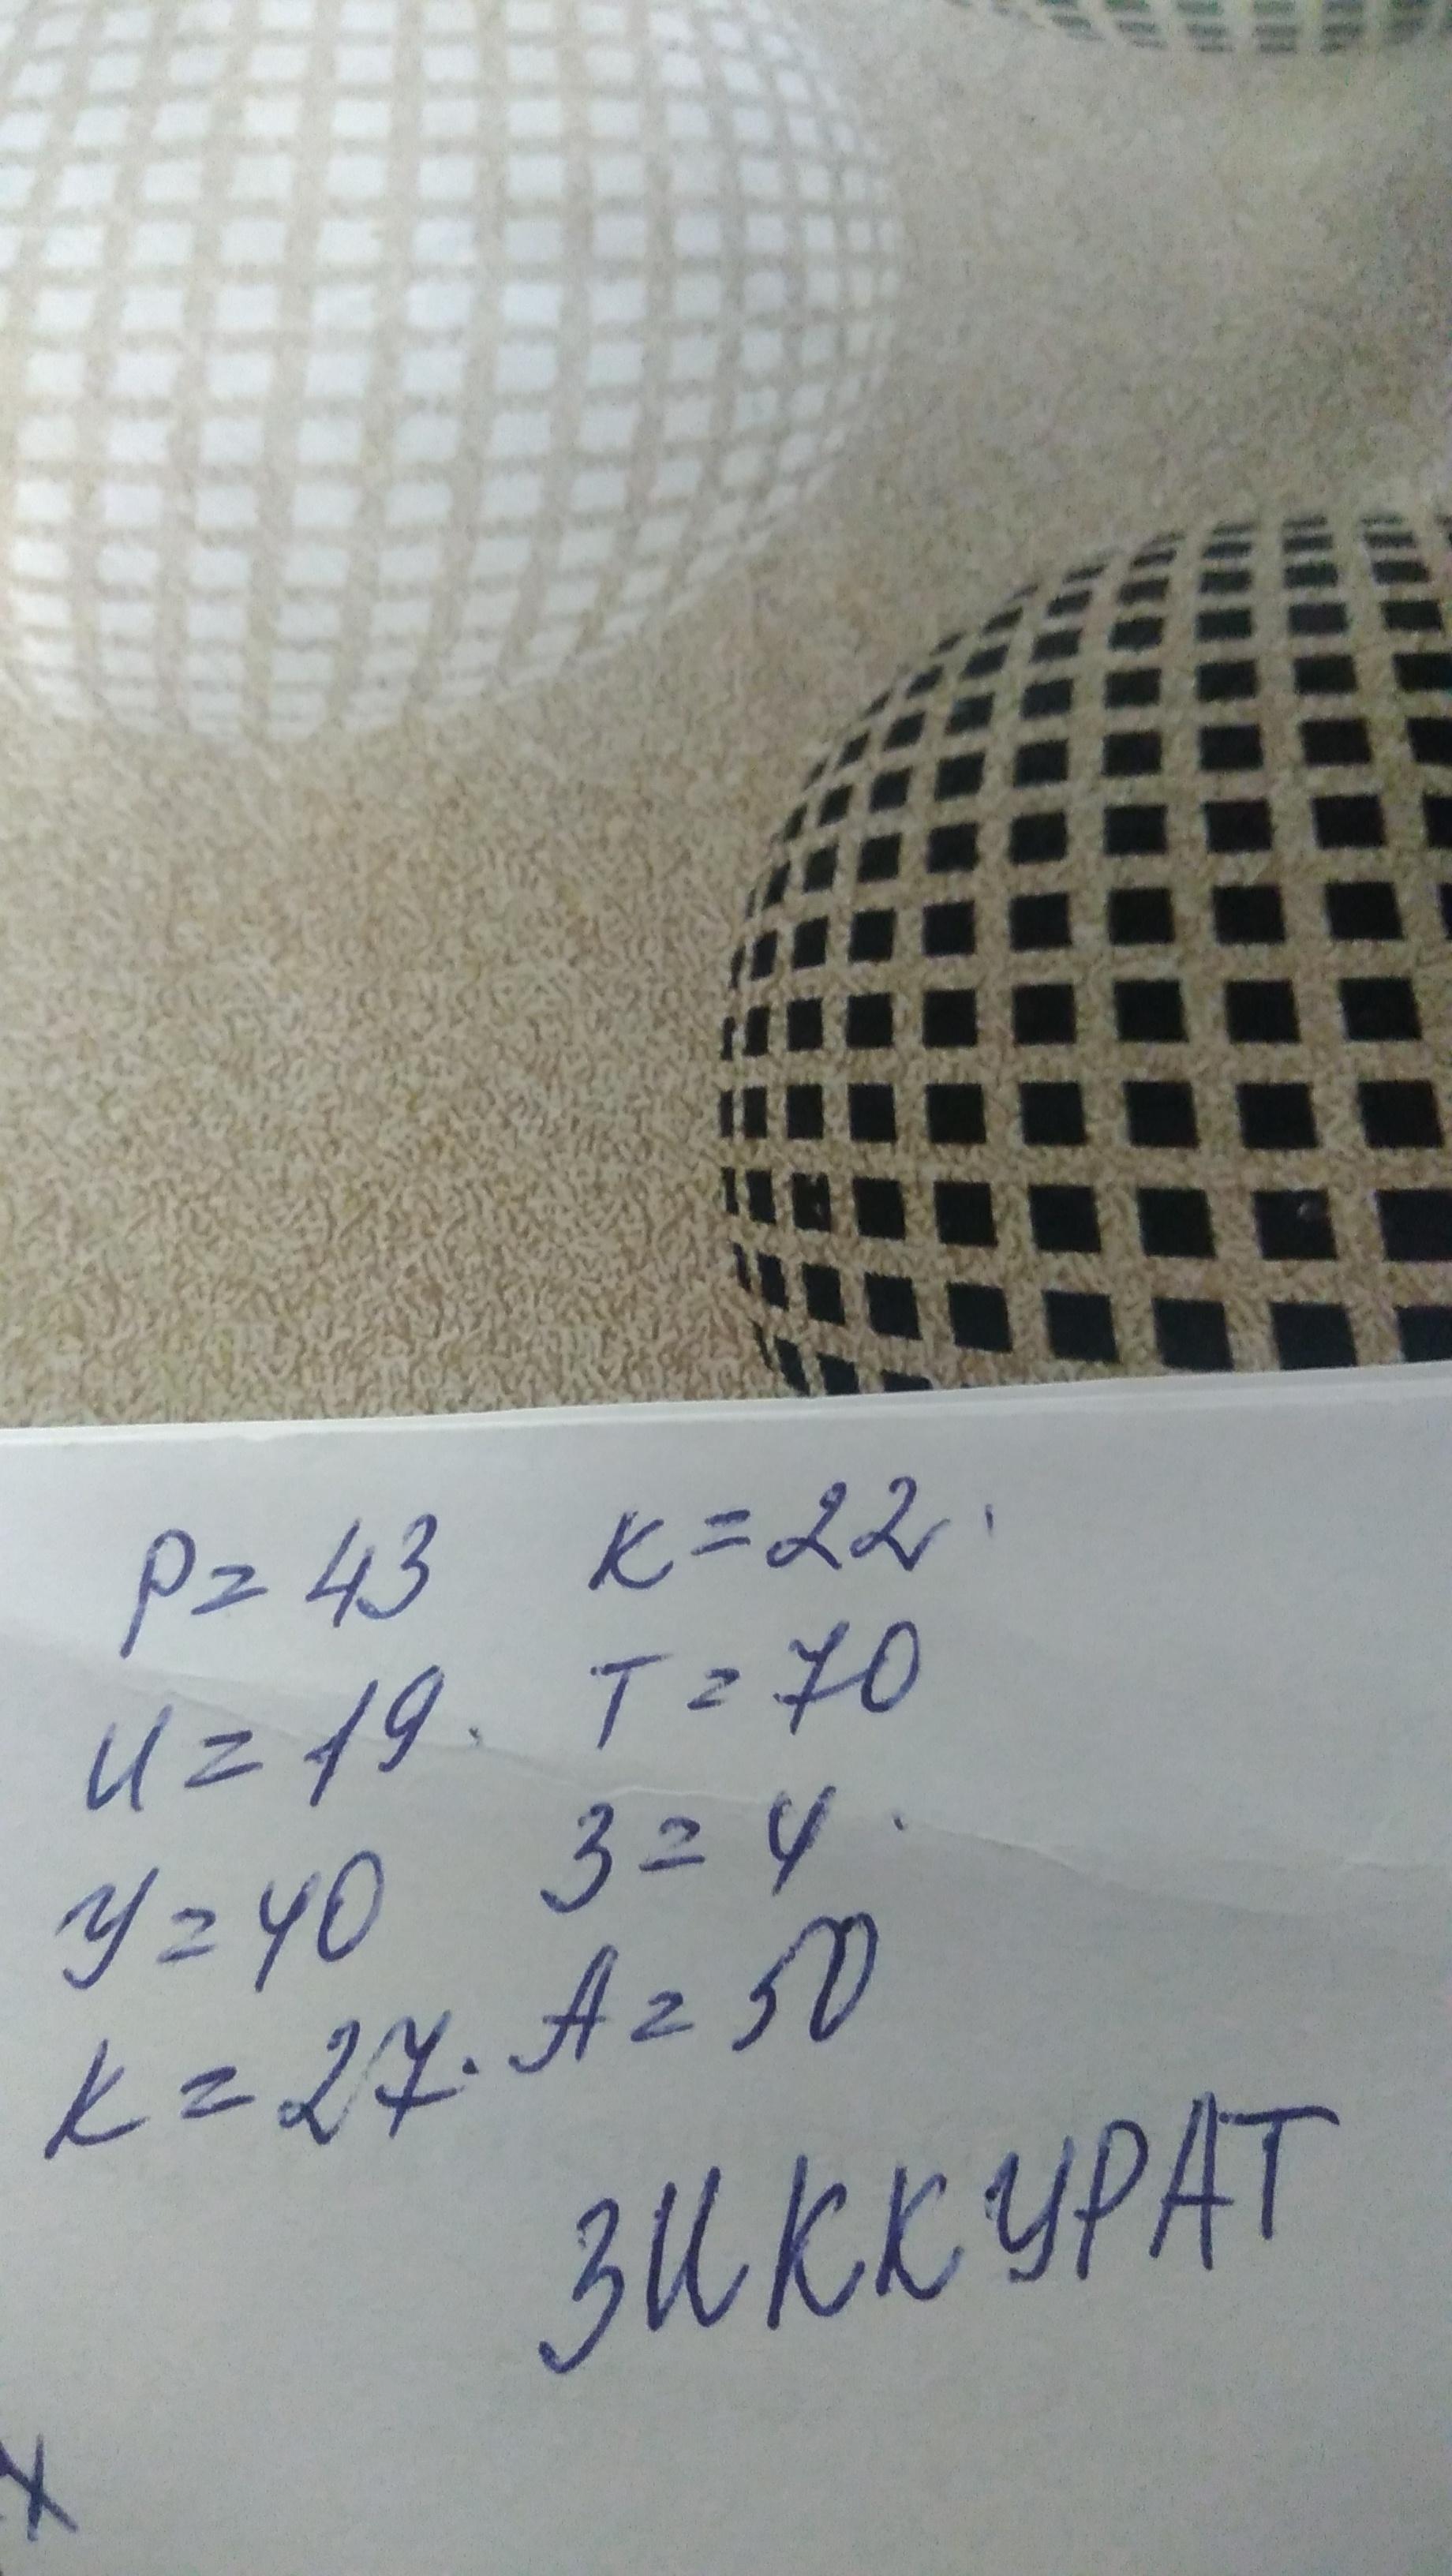 Р = 43 К = 22.
И = 19. Т = 70
У = 40 З = 4.
К = 27. А = 50
ЗИККУРАТ
х